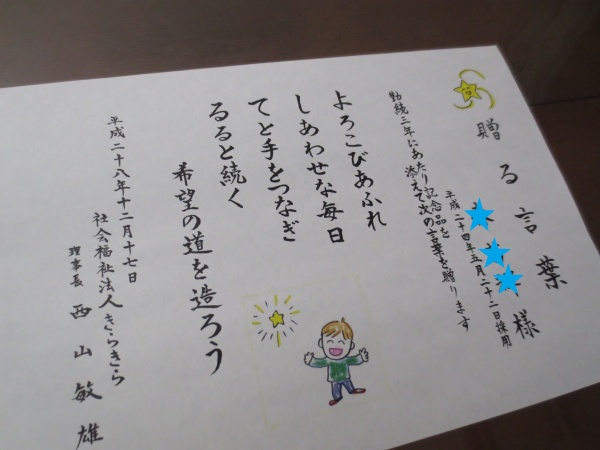 贈る言葉
様
平成二十四年五月二十二日採用
勤続三年にあたり記念品を
添えて次の言葉を贈ります
よろこびあふれ
しあわせな毎日
てと手をつなぎ
るると続く
希望の道を造ろう
平成二十八年十二月十七日
社会福祉法人きらきら
理事長 西山敏雄